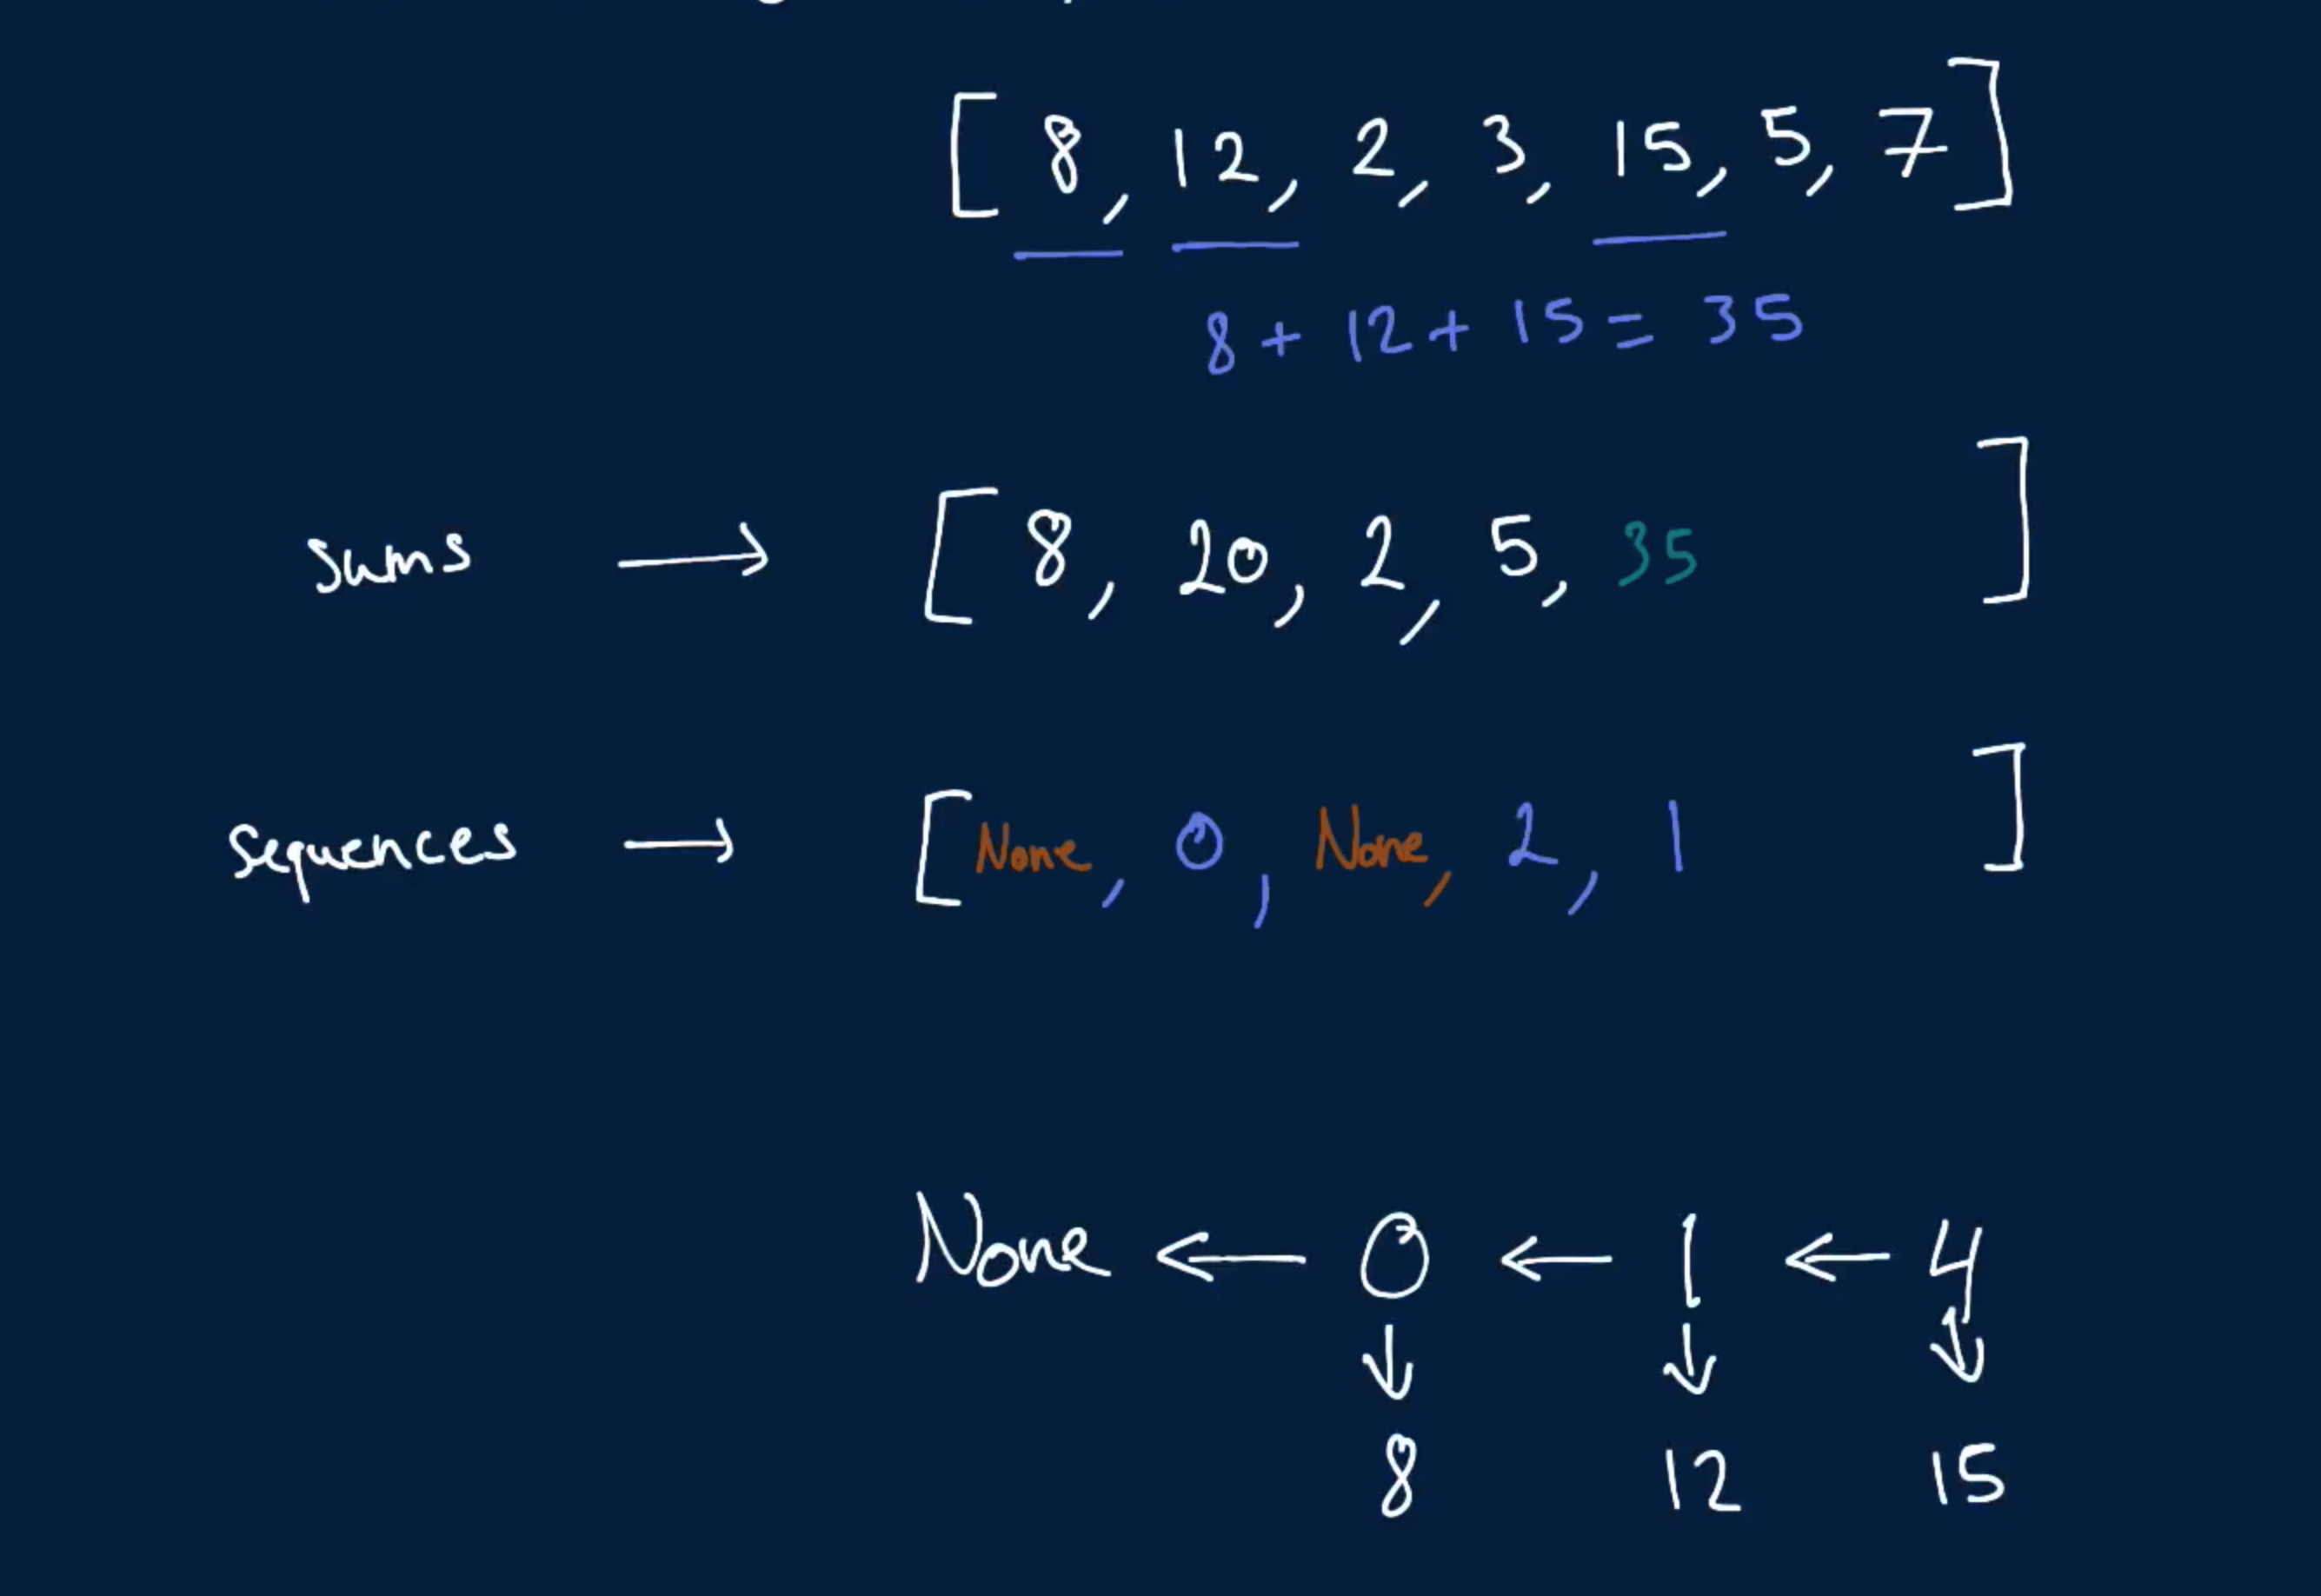 [ 8, 12, 2, 3, 15, 5, 7 ]
8 + 12 + 15 = 35
sums → [ 8, 20, 2, 5, 35 ]
sequences → [ None, 0, None, 2, 1 ]
None ← 0 ← 1 ← 4
↓ ↓ ↓
8 12 15